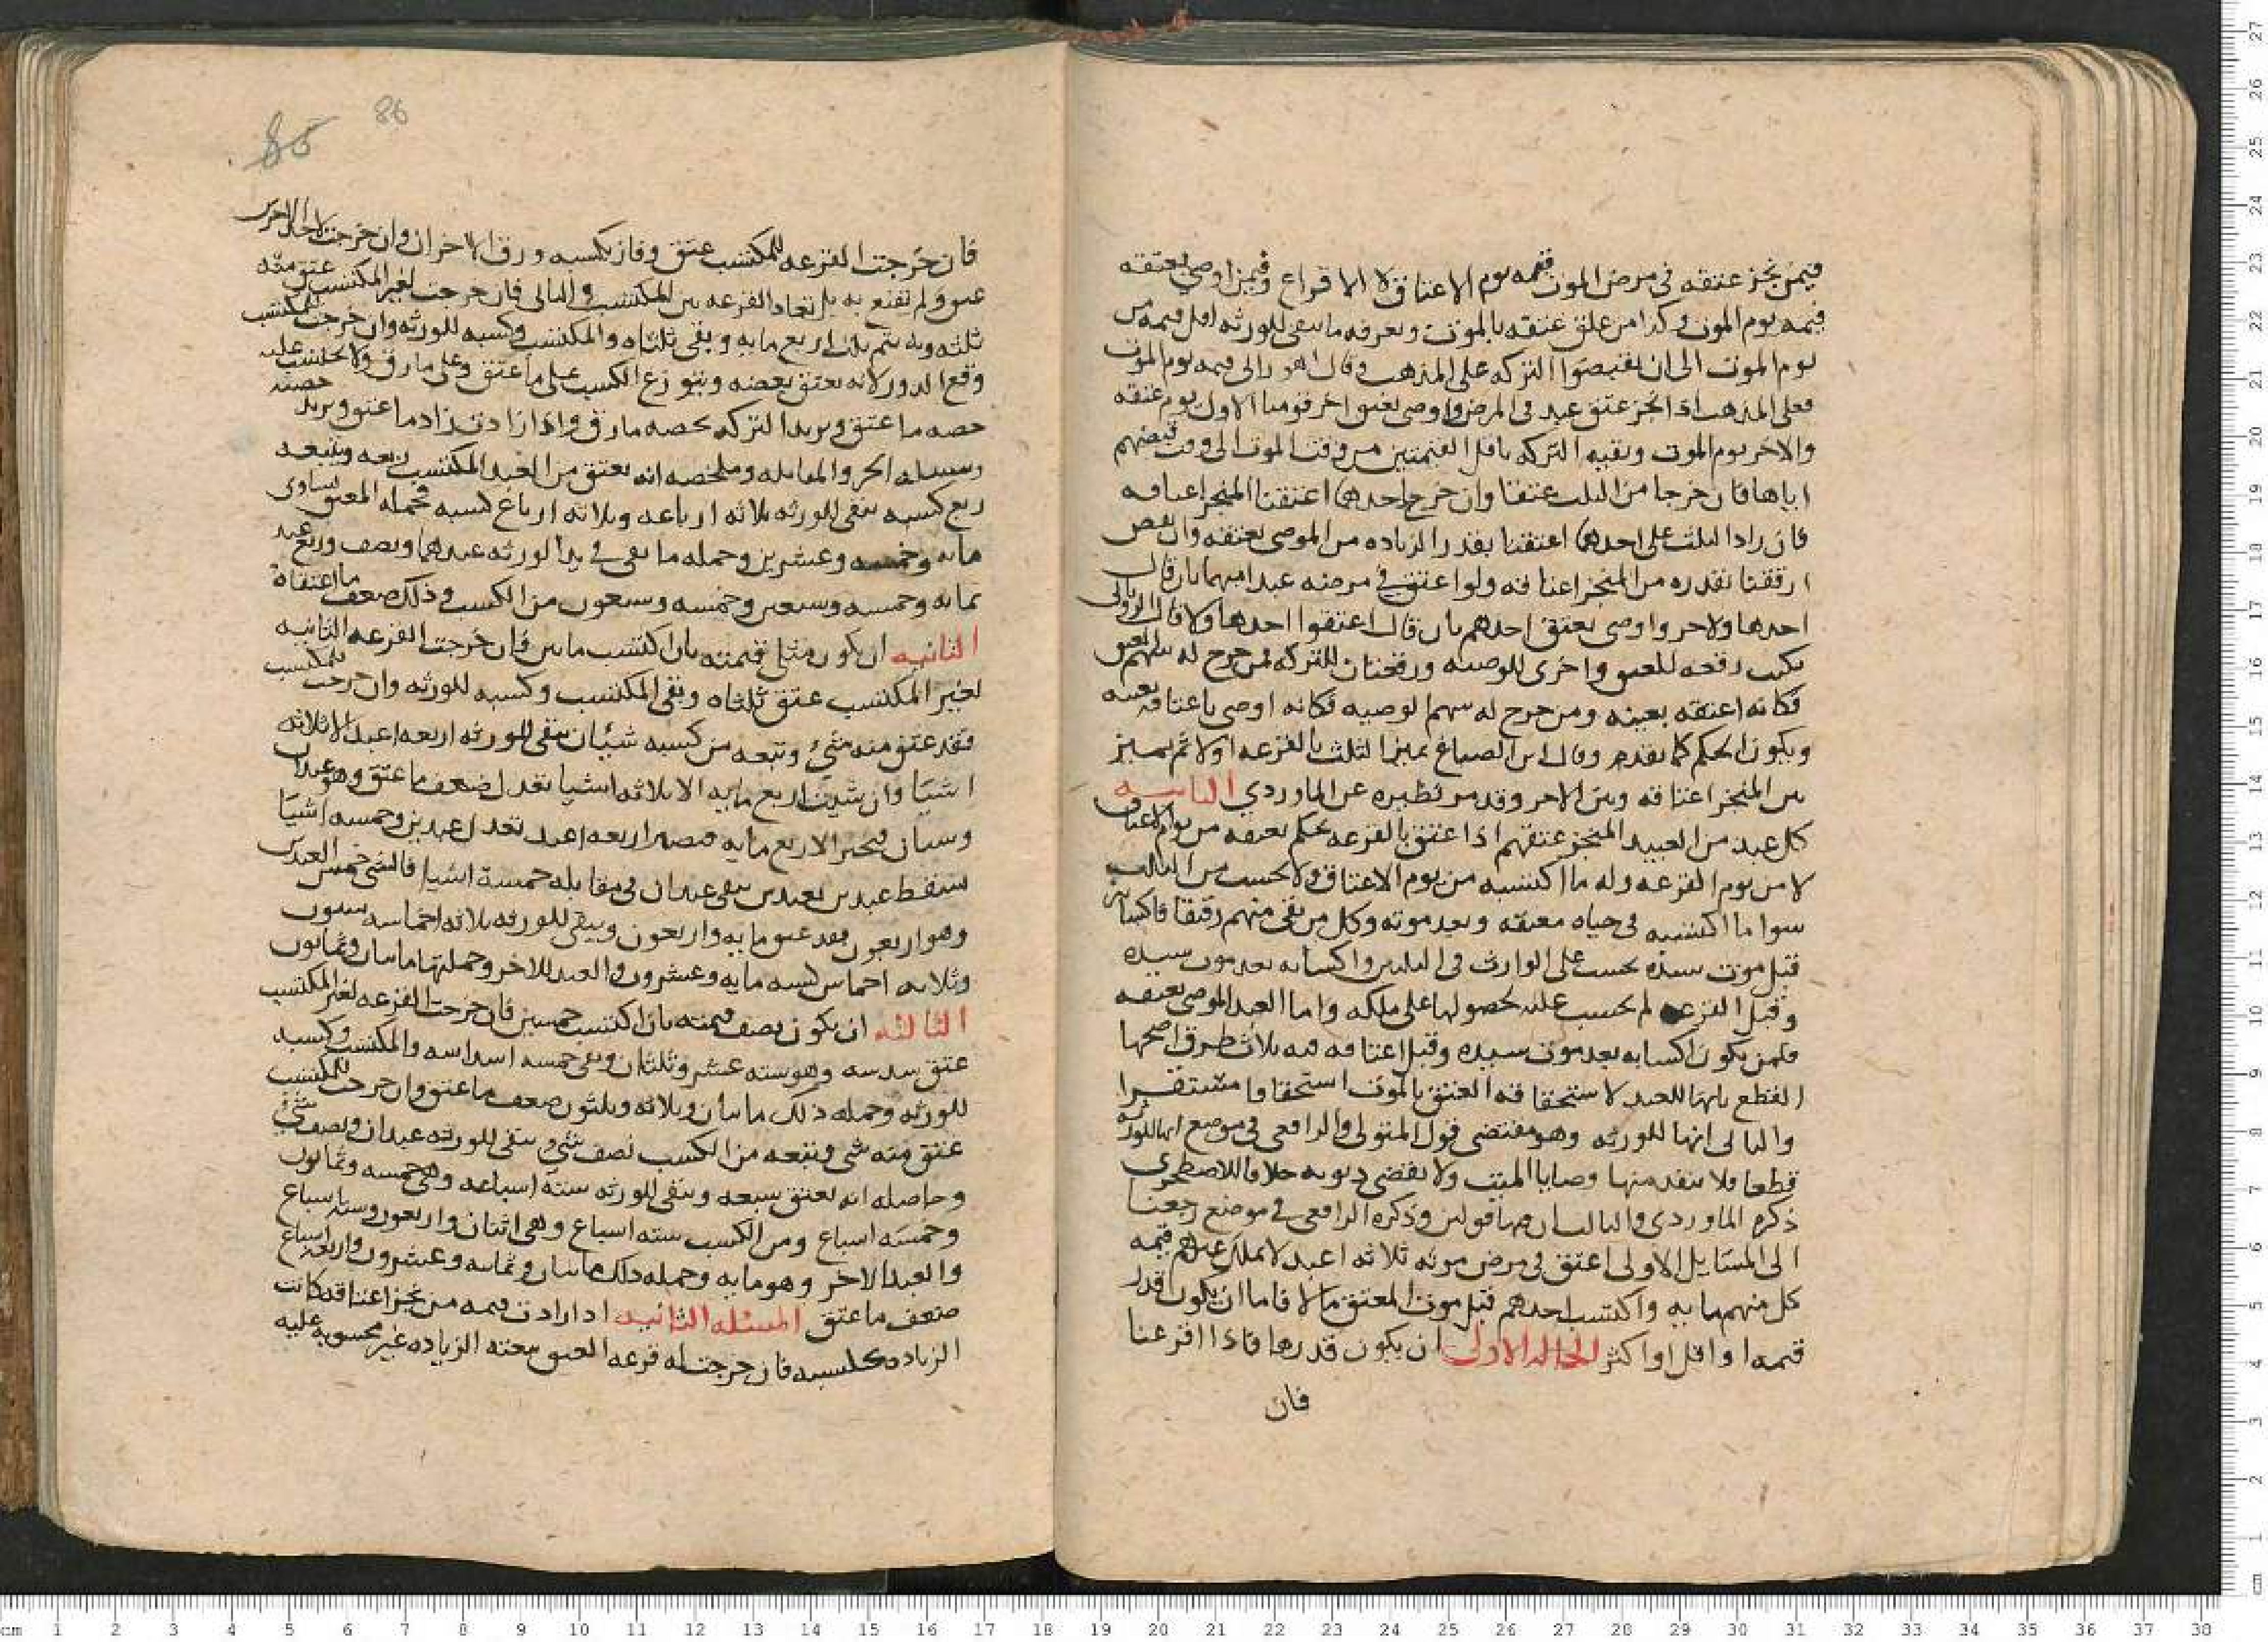 فيمن نجز عتقه في مرض الموت قيمه يوم الاعتاق لا الاقراع وفيمن اوصى بعتقه
قيمه يوم الموت وكذا من علق عتقه بالموت ويعرفه ما يبقى للورثه اقل قيمه من
يوم الموت الى ان يقبضوا التركه على المذهب وقال اهد رالى قيمه يوم الموت
فعلى المذهب اذا نجز عتق عبد في المرض واوصى بعتق اخر قومنا الاول يوم عتقه
والاخر يوم الموت وبقيه التركه باقل القيمتين من وقت الموت الى وقت قبضهم
اياها فان خرجا من الثلث عتقا وان خرج احدهما اعتقنا المنجز اعتاقه
فان زاد الثلث على احدهما اعتقنا بقدر الزياده من الموصى بعتقه وان نقص
ارققنا بقدره من المنجز اعتاقه ولو اعتق في مرضه عبدا مبهما بان قال
احدها ولاحر واوصى بعتق احدهم بان قال اعتقوا احدها ولا قال
يكتب رقعه للعتق واخرى للوصيه ورقعتان للتركه فمن خرج له سهم العتق
فكانه اعتقه بعينه ومن خرج له سهم الوصيه فكانه اوصى باعتاقه بعينه
ويكون الحكم كما تقدم وقال ابن الصباغ يميز الثلث بالقرعه اولا ثم يميز
بين المنجز اعتاقه وبين الاخر وقد مر نظيره عن الماوردي الثامنه
كل عبد من العبيد المنجز عتقهم اذا عتق بالقرعه يحكم بعتقه من يوم الاعتاق
لا من يوم القرعه وله ما اكتسبه من يوم الاعتاق ولا يحسب من الثلث
سوا ما اكتسبه في حياه معتقه وبعد موته وكل من بقي منهم رقيقا فاكسابه
قبل موت سيده يحسب على الوارث في الثلثين واكسابه بعد موت سيده
وقبل القرعه لم يحسب عليه لحصولها على ملكه واما العبد الموصى بعتقه
فلمن يكون اكسابه بعد موت سيده وقبل اعتاقه فيه ثلاث طرق اصحها
القطع بانها للعبد لاستحقاقه العتق بالموت استحقاقا مستقرا
والثاني انها للورثه وهو مقتضى قول المتولي والرافعي في موضع انها للورثه
قطعا فلا ينفد منها وصايا الميت ولا يقضى ديونه خلافا للاصطخري
ذكره الماوردي والثالث ان فيها قولين وذكره الرافعي في موضع رجعنا
الى المسايل الاولى اعتق في مرض موته ثلاثه اعبد لا يملك غيرهم قيمه
كل منهم مايه واكتسب احدهم قبل موت المعتق مالا فاما ان يكون قدر
قيمه او اقل او اكثر الحاله الاولى ان يكون قدرها فاذا اقرعنا
فان
86
85
فان خرجت القرعه للمكتسب عتق وفاز بكسبه ورق الاخران وان خرجت لاحد الاخرين
عتق ولم نقنع به بل تعاد القرعه بين المكتسب والثاني فان خرجت لغير المكتسب عتق منه
ثلثه وبه يتم ثلث اربع مايه ويبقى ثلثاه والمكتسب وكسبه للورثه وان خرجت للمكتسب
وقع الدور لانه يعتق بعضه ويتوزع الكسب على ما عتق وعلى ما رق ولا يحتسب عليه
حصه ما عتق ويزيد التركه بحصه ما رق واذا زادت زاد ما عتق ويزيد حصته
وسبيله الجبر والمقابله وملخصه انه يعتق من العبد المكتسب ربعه ويتبعه
ربع كسبه يبقى للورثه ثلاثه ارباعه وثلاثه ارباع كسبه فجمله المعتق يساوى
مايه وخمسه وعشرين وجمله ما بقى في يد الورثه عبدهما ونصف وربع عبد
بمايه وخمسه وسبعين وخمسه وسبعون من الكسب وذلك ضعف ما اعتقناه
الثانيه ان يكون مثلي قيمته بان اكتسب مايتين فان خرجت القرعه الثانيه
لغير المكتسب عتق ثلثاه وبقى المكتسب وكسبه للورثه وان خرجت للمكتسب
فقد عتق منه شيء وتبعه من كسبه شيئان يبقى للورثه اربعه اعبد الا ثلاثه
اشيا وان شيت اربع مايه الا ثلاثه اشيا تعدل ضعف ما عتق وهو عبدان
وسيان فتجبر الاربع مايه فتصير اربعه اعبد تعدل عبدين وخمسه اشيا
تسقط عبدين بعبدين يبقى عبدان في مقابله خمسه اشيا فالشي خمس العبدين
وهو اربعون فقد عتق مايه واربعون ويبقى للورثه ثلاثه اخماسه ستون
وثلاثه اخماس كسبه مايه وعشرون والعبد الاخر وجملتها مايتان وثمانون
الثالثه ان يكون نصف قيمته بان اكتسب خمسين فان خرجت القرعه لغير المكتسب
عتق سدسه وهو سته عشر وثلثان وبقى خمسه اسداسه والمكتسب وكسبه
للورثه وجمله ذلك مايتان وثلاثه وثلثون ضعف ما عتق وان خرجت للمكتسب
عتق منه شي وتبعه من الكسب نصف شيء يبقى للورثه عبدان ونصف شيء
وحاصله انه يعتق سبعه ويبقى للورثه سته اسباعه وهي خمسه وثمانون
وخمسه اسباع ومن الكسب سته اسباع وهي اثنان واربعون وسته اسباع
والعبد الاخر وهو مايه وجمله ذلك مايتان وثمانيه وعشرون واربعه اسباع
ضعف ما عتق المسئله الثانيه اذا زادت قيمه من نجز اعتاقه كانت
الزياده ككسبه فان خرجت له قرعه العتق تبعته الزياده غير محسوبه عليه